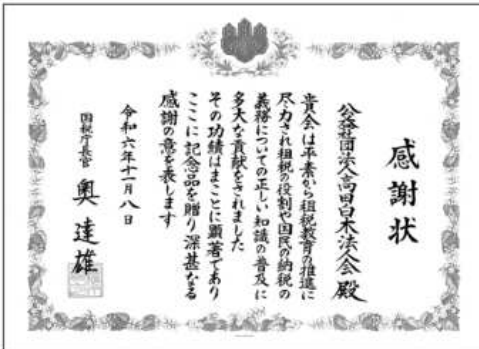 感謝状
公益社団法人高田 殿
貴会は平素から租税教育の推進に
尽力され租税の役割や国民の納税の
義務についての正しい知識の普及に
多大な貢献をされました
その功績はまことに顕著であり
ここに記念品を贈り深甚なる
感謝の意を表します
令和六年十一月八日
国税庁長官 奥達雄